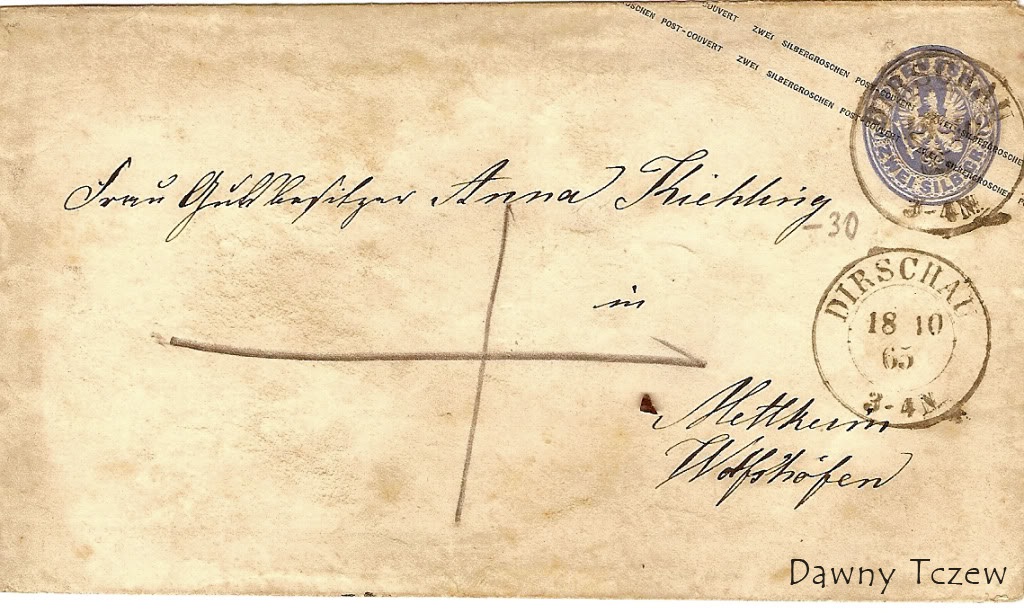 POST-COUVERT ZWEI SILBERGROSCHEN POST-COUVERT ZWEI SILBERGROSCHEN
POST-COUVERT ZWEI SILBERGROSCHEN POST-COUVERT ZWEI SILBERGROSCHEN
DIRSCHAU
2
ZWEI SILBERGR
3-4N.
Frau Gutsbesitzer Anna Kiehling
-30
in
DIRSCHAU
18 10
65
3-4N.
Mettkeim
Wolfshöfen
Dawny Tczew